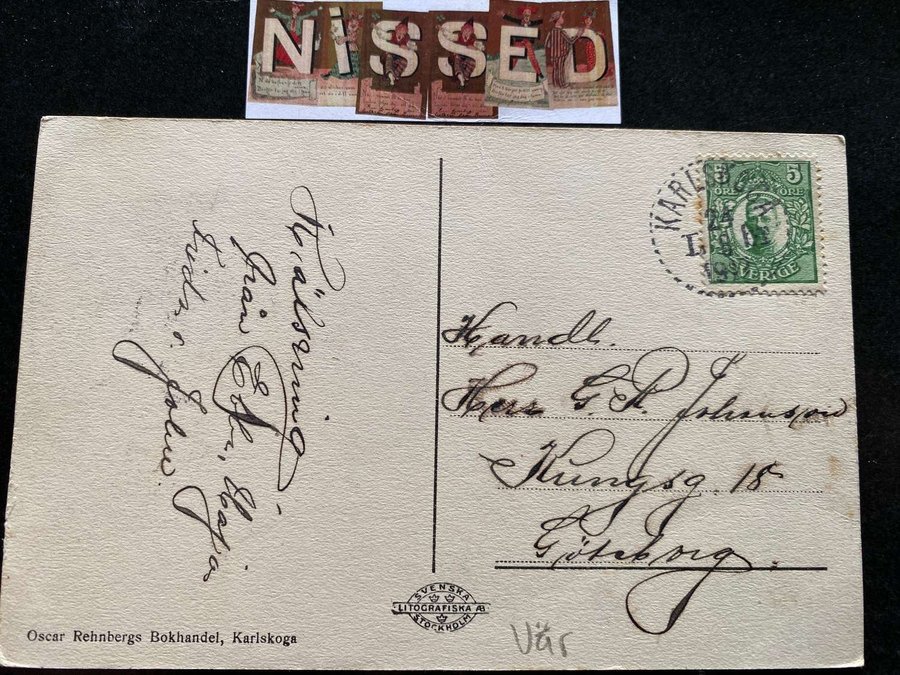 NISSED
Hälsning
från Ester, Maja
Frida o. John.
KARLSKOGA
24
L
19
5 5
ÖRE ÖRE
SVERIGE
Handl.
Herr G R. Johansson
Kungsg. 18
Göteborg.
SVENSKA
LITOGRAFISKA AB
STOCKHOLM
Oscar Rehnbergs Bokhandel, Karlskoga
Vär